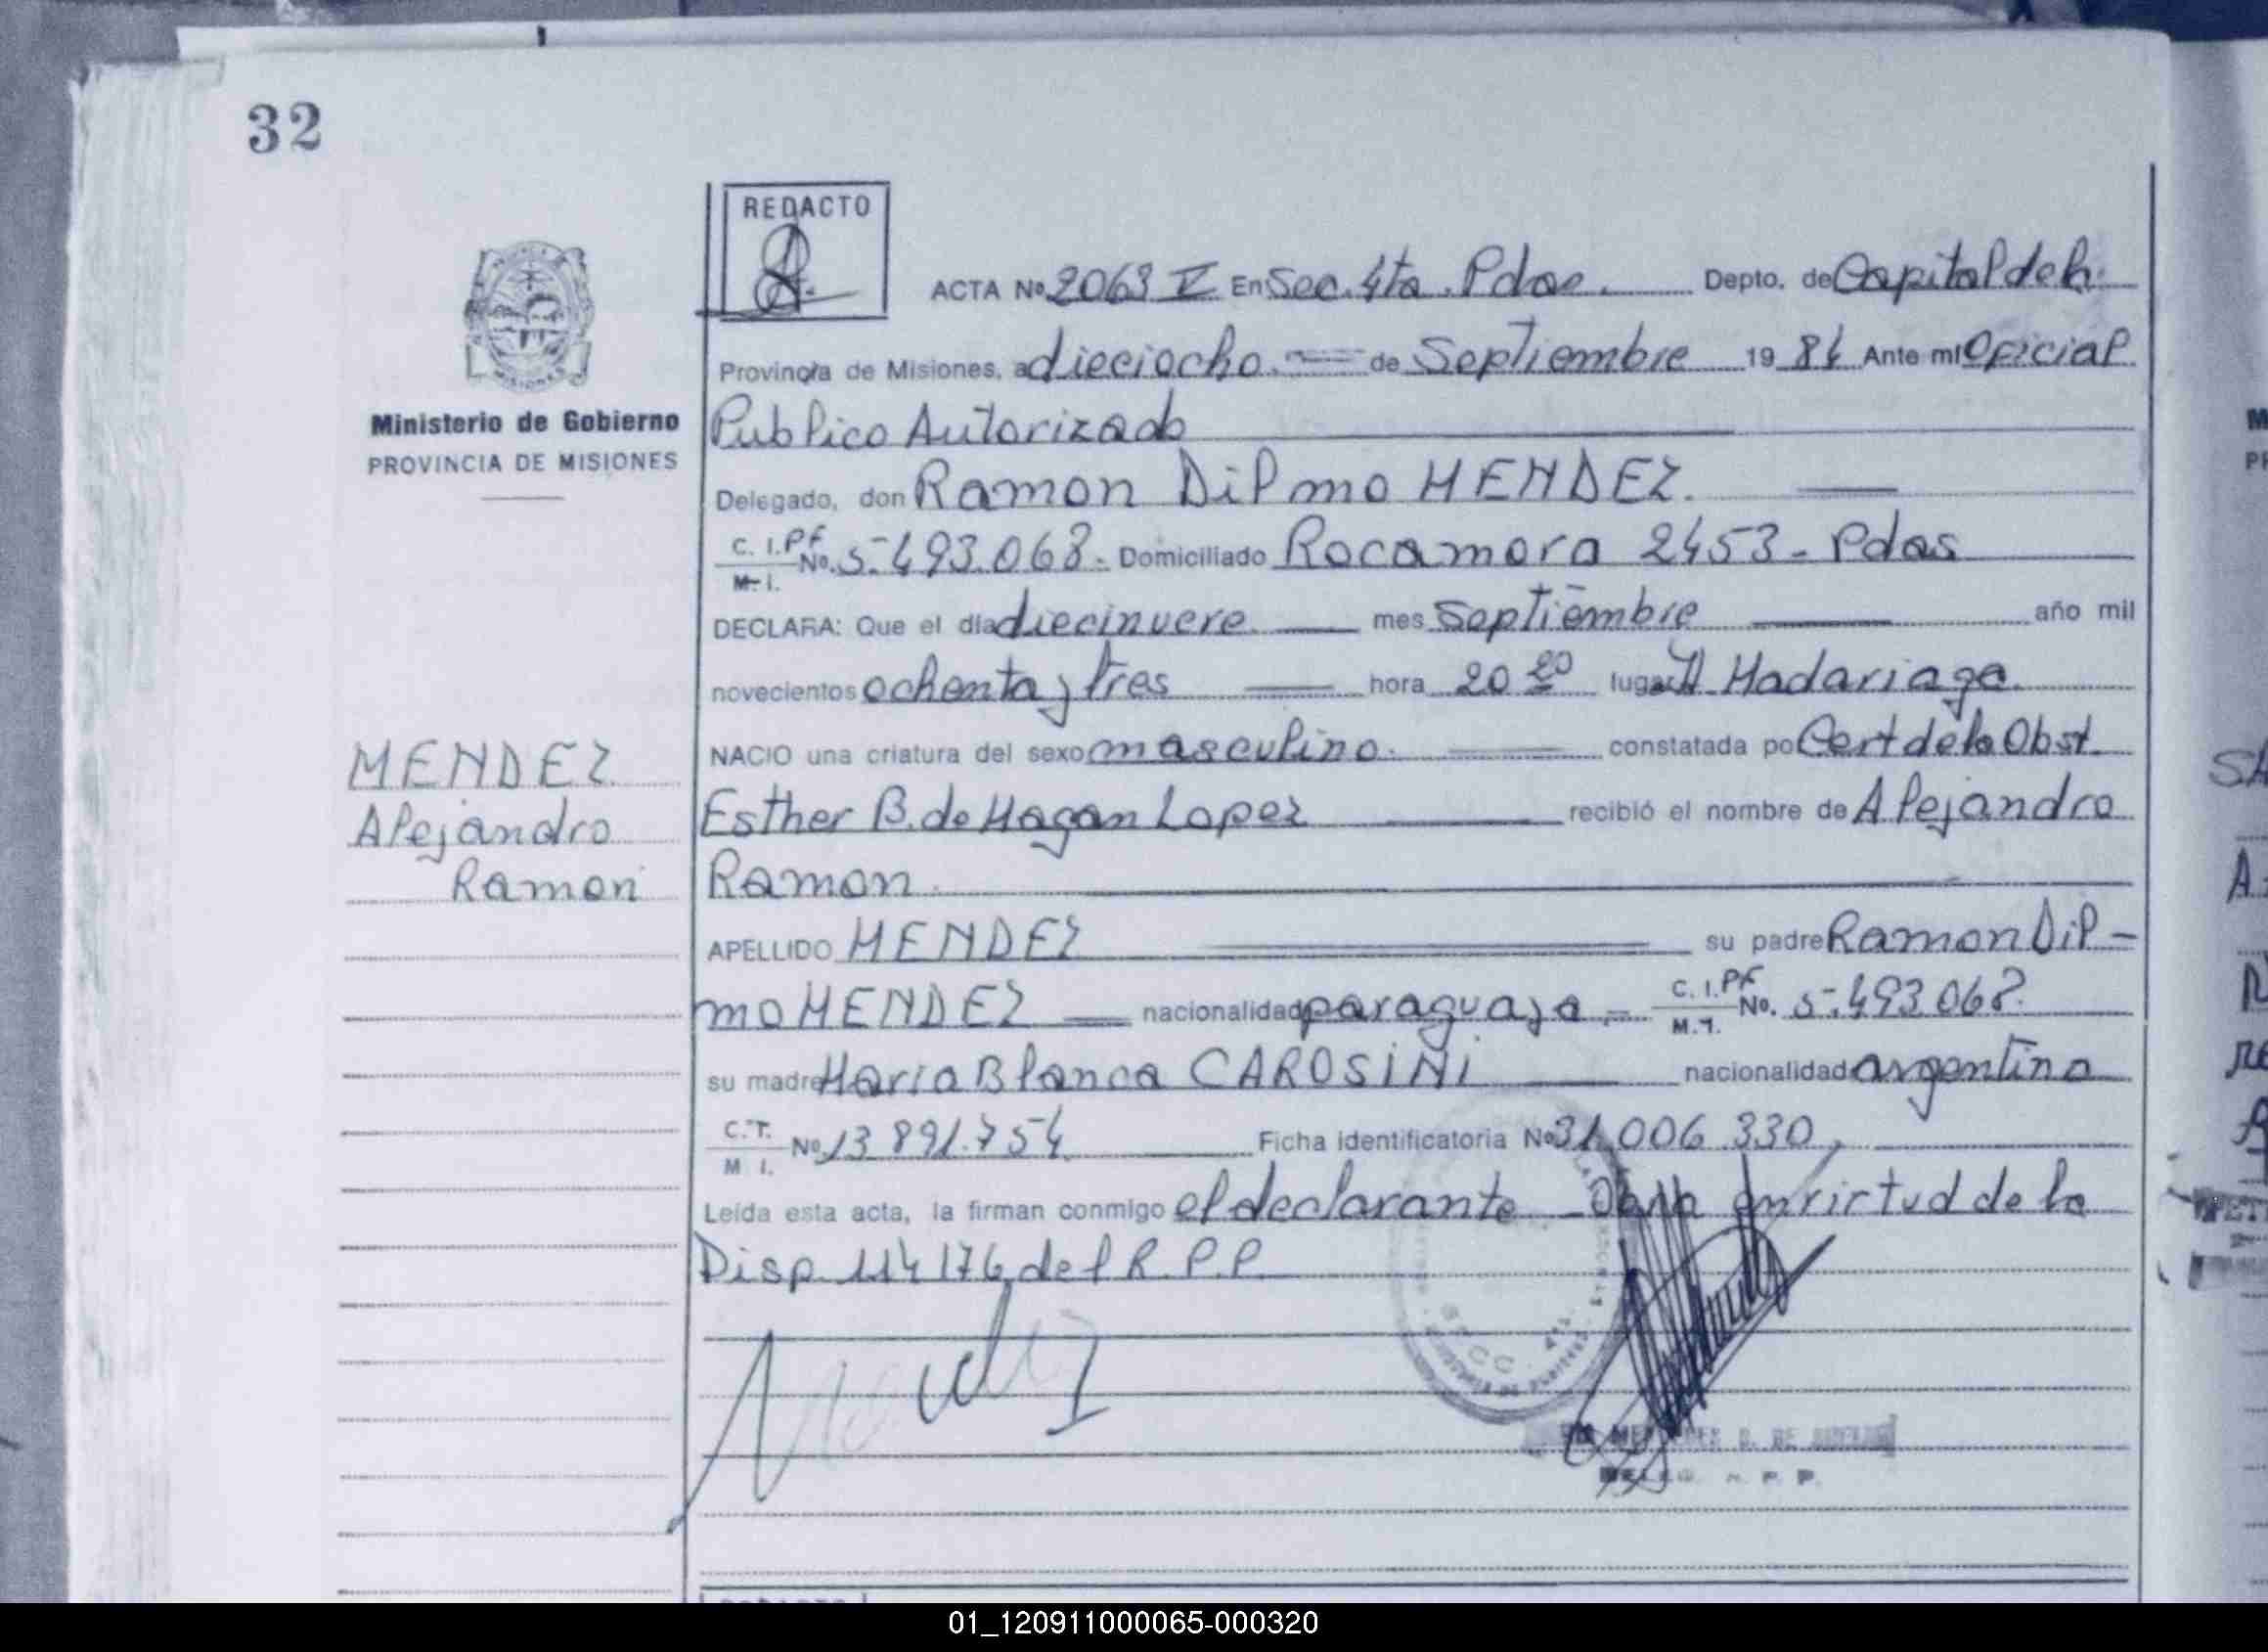 32
REDACTO
ACTA Nº 2063 V En Sec. 4ta. Pdas. Depto. de Capital de la
Provincia de Misiones, a dieciocho. de Septiembre 19 84 Ante mi Oficial
Ministerio de Gobierno
PROVINCIA DE MISIONES
Publico Autorizado
Delegado, don Ramon Dilmo MENDEZ.
C. I. PF No. 5.493.068. Domiciliado Rocamora 2453 - Pdas
M. I.
DECLARA: Que el día diecinueve mes Septiembre año mil
novecientos ochenta y tres hora 20 20 lugar H. Madariaga.
MENDEZ
Alejandro
Ramon
NACIO una criatura del sexo masculino. constatada por Cert de la Obst.
Esther B. de Hagan Lopez recibió el nombre de Alejandro
Ramon.
APELLIDO MENDEZ su padre Ramon Dil-
mo MENDEZ nacionalidad paraguaya.- C. I. PF No. 5.493.068.
M. I.
su madre Maria Blanca CAROSiNi nacionalidad argentina
C. I. Nº 13.891.754 Ficha identificatoria Nº 31.006.330,
M I.
Leída esta acta, la firman conmigo el declarante en virtud de la
Disp. 114176 del R.P.P.
DELEG. R. P. P.
01_120911000065-000320